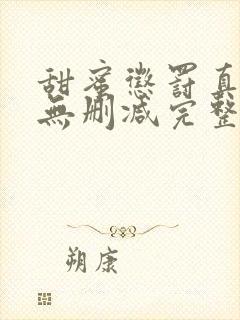 甜蜜懲罰真
無刪减完整
朔康